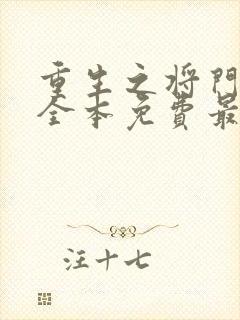 重生之将门
全本免费最
汪十七